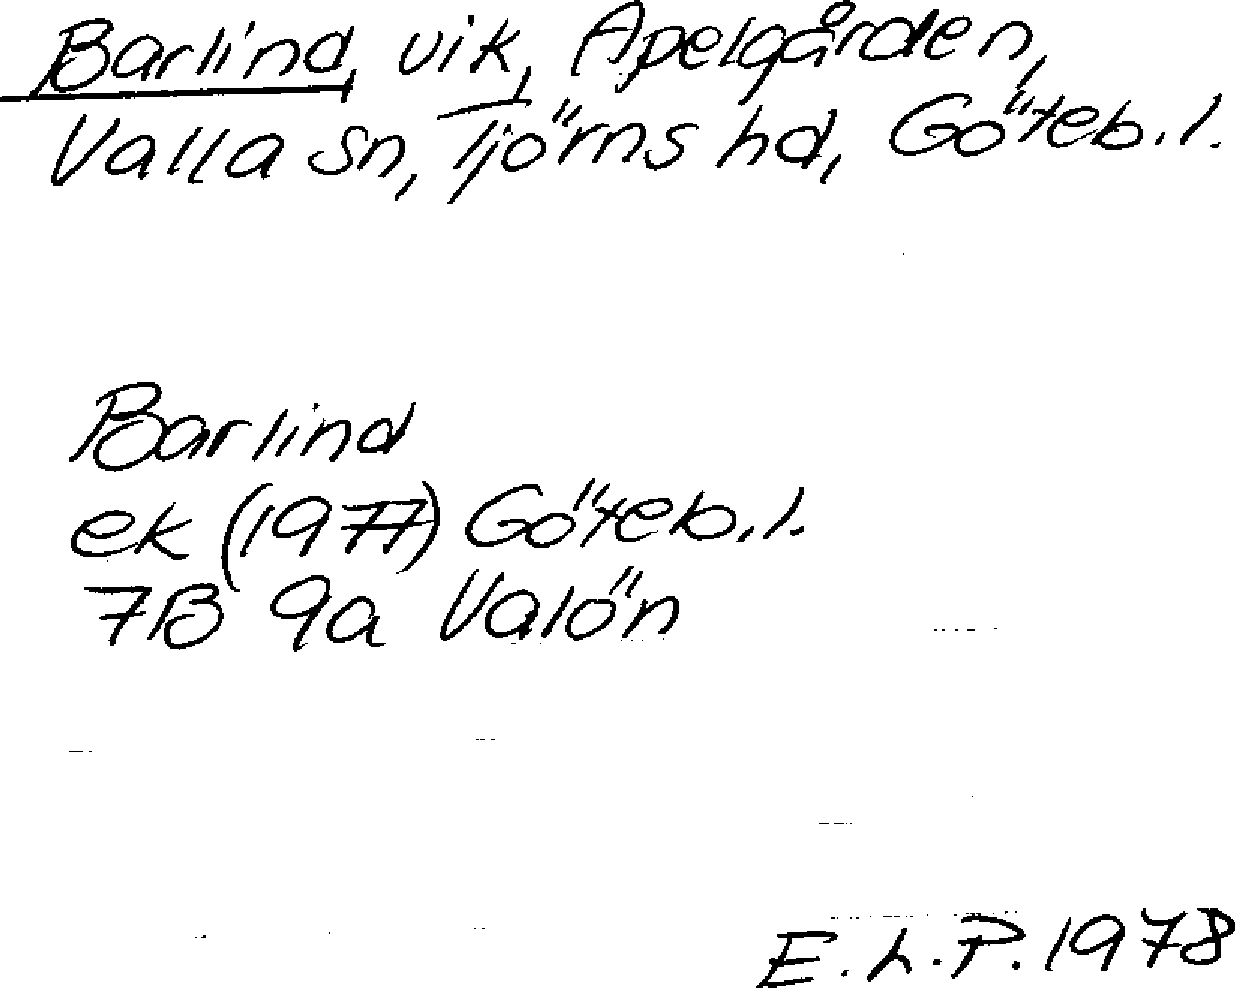 Barlind, vik, Apelgården,
Valla sn, Tjörns hd, Göteb.l.
Barlind
ek (1977) Göteb.l.
7B 9a Valön
E.L.P. 1978